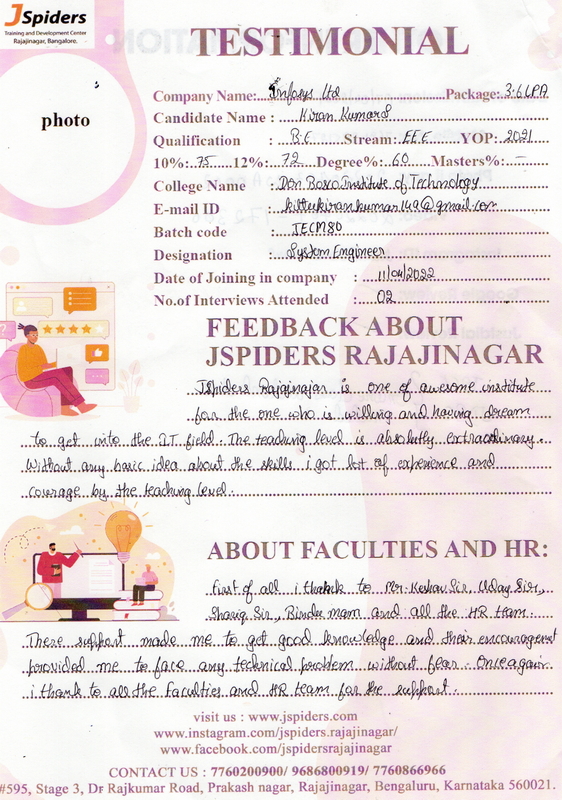 JSpiders
Training and Development Center
Rajajinagar, Bangalore.
TESTIMONIAL
photo
Company Name: Infosys Ltd Package: 3.6 LPA
Candidate Name : Kiran Kumar S
Qualification : B.E Stream: EEE YOP: 2021
10%: 75 12%: 72 Degree%: 60 Masters%: -
College Name : Don Bosco Institute of Technology
E-mail ID : kittukirankumar149@gmail.com
Batch code : JECM80
Designation : System Engineer
Date of Joining in company : 11/04/2022
No.of Interviews Attended : 02
FEEDBACK ABOUT
JSPIDERS RAJAJINAGAR
JSpiders Rajajinajar is one of awesome institute
for the one who is willing and having dream
to get into the IT field. The teaching level is absolutly extraordinary.
Without any basic idea about the skills i got lot of experience and
courage by the teaching level.
ABOUT FACULTIES AND HR:
First of all i thank to Mr. Keshav Sir, Uday Sir,
Sir, Bindu mam and all the HR team.
There support made me to get good knowledge and their encouragement
provided me to face any technical problem without fear. Once again
i thank to all the Faculties and HR team for the support.
visit us : www.jspiders.com
www.instagram.com/jspiders.rajajinagar/
www.facebook.com/jspidersrajajinagar
CONTACT US : 7760200900/ 9686800919/ 7760866966
#595, Stage 3, Dr Rajkumar Road, Prakash nagar, Rajajinagar, Bengaluru, Karnataka 560021.